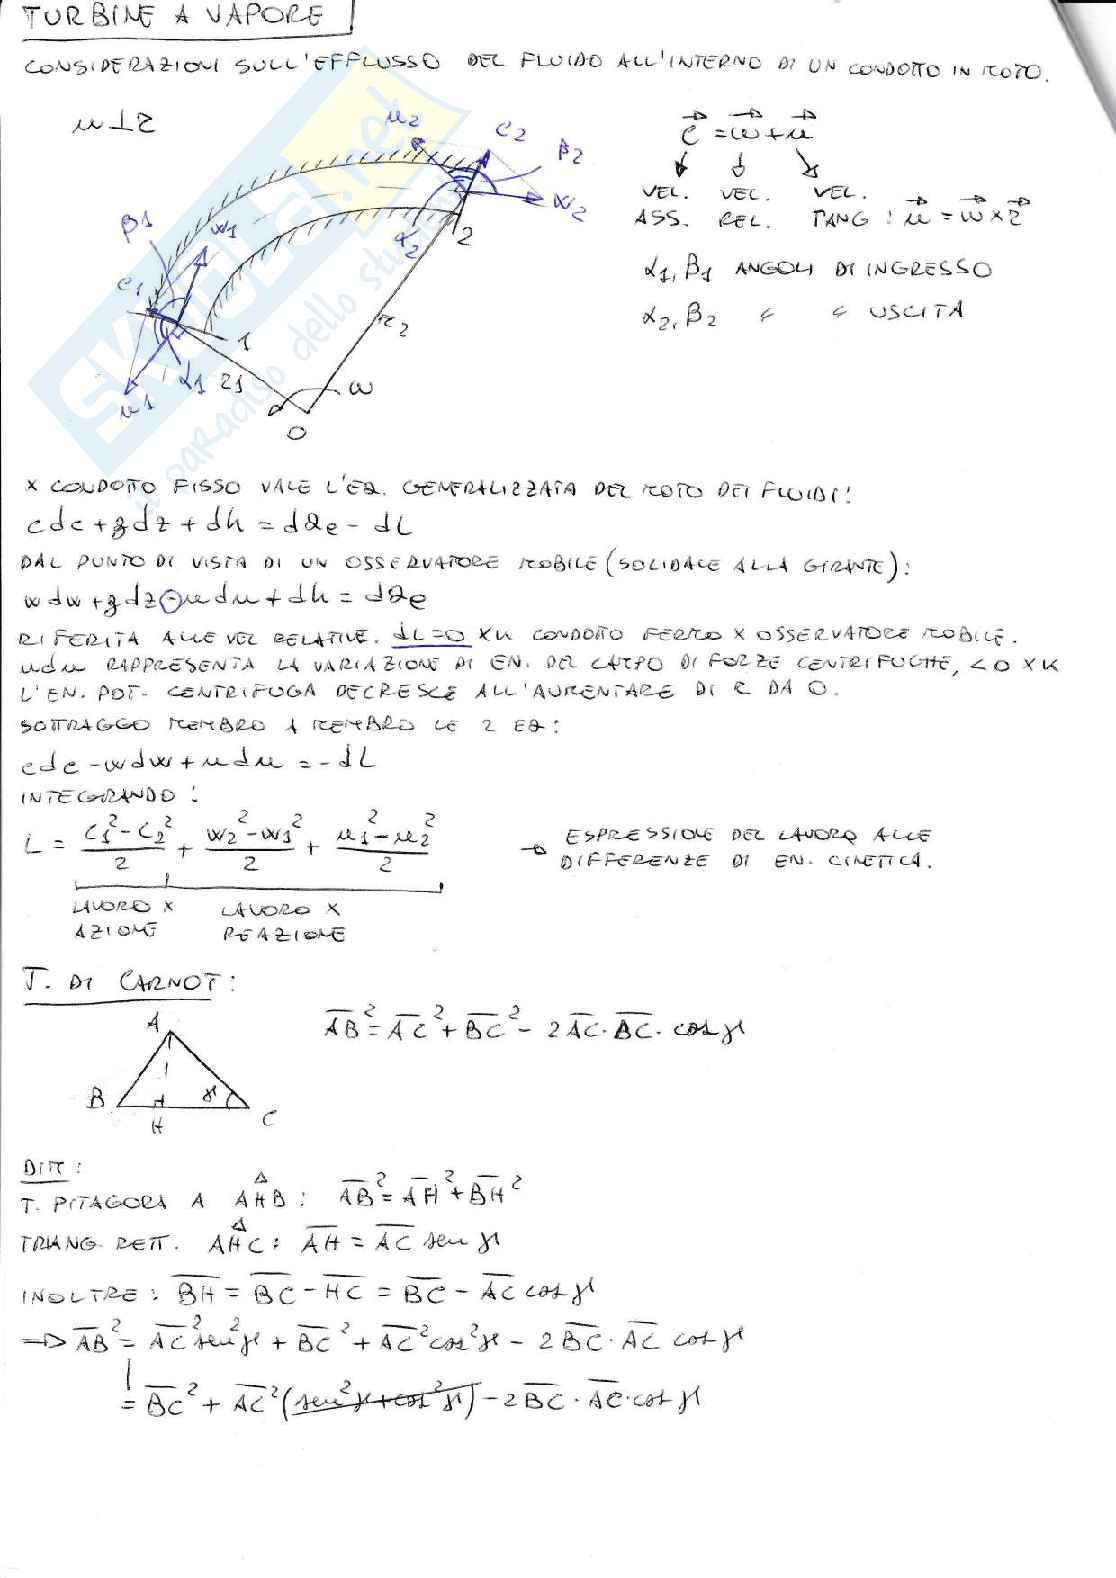 TURBINE A VAPORE
CONSIDERAZIONI SULL'EFFLUSSO DEL FLUIDO ALL'INTERNO DI UN CONDOTTO IN MOTO.
u⊥r
u2 c2 β2 w2 α2 2
β1 w1 c1 1 α1 r1 u1 r2 ω O
SKUOLA.net
il paradiso dello studente
c⃗ = w⃗ + u⃗
VEL. VEL. VEL.
ASS. REL. TANG : u⃗ = ω⃗ × r⃗
α1, β1 ANGOLI DI INGRESSO
α2, β2 " " USCITA
X CONDOTTO FISSO VALE L'EQ. GENERALIZZATA DEL MOTO DEI FLUIDI:
cdc + gdz + dh = dQe - dL
DAL PUNTO DI VISTA DI UN OSSERVATORE MOBILE (SOLIDALE ALLA GIRANTE):
wdw + gdz - udu + dh = dQe
RIFERITA ALLE VEL RELATIVE. dL=0 XK CONDOTTO FERMO X OSSERVATORE MOBILE.
udu RAPPRESENTA LA VARIAZIONE DI EN. DEL CAMPO DI FORZE CENTRIFUGHE, <0 XK
L'EN. POT. CENTRIFUGA DECRESCE ALL'AUMENTARE DI R DA O.
SOTTRAGGO MEMBRO A MEMBRO LE 2 EQ:
cdc - wdw + udu = -dL
INTEGRANDO:
L = (c1² - c2²)/2 + (w2² - w1²)/2 + (u1² - u2²)/2 → ESPRESSIONE DEL LAVORO ALLE
DIFFERENZE DI EN. CINETICA.
LAVORO X LAVORO X
AZIONE REAZIONE
T. DI CARNOT:
A B C H γ
AB² = AC² + BC² - 2AC · BC · cos γ
DIM:
T. PITAGORA A AHB: AB² = AH² + BH²
TRIANG. RETT. AHC: AH = AC sen γ
INOLTRE: BH = BC - HC = BC - AC cos γ
⇒ AB² = AC² sen²γ + BC² + AC² cos²γ - 2BC · AC cos γ
= BC² + AC² (sen²γ + cos²γ) - 2BC · AC · cos γ